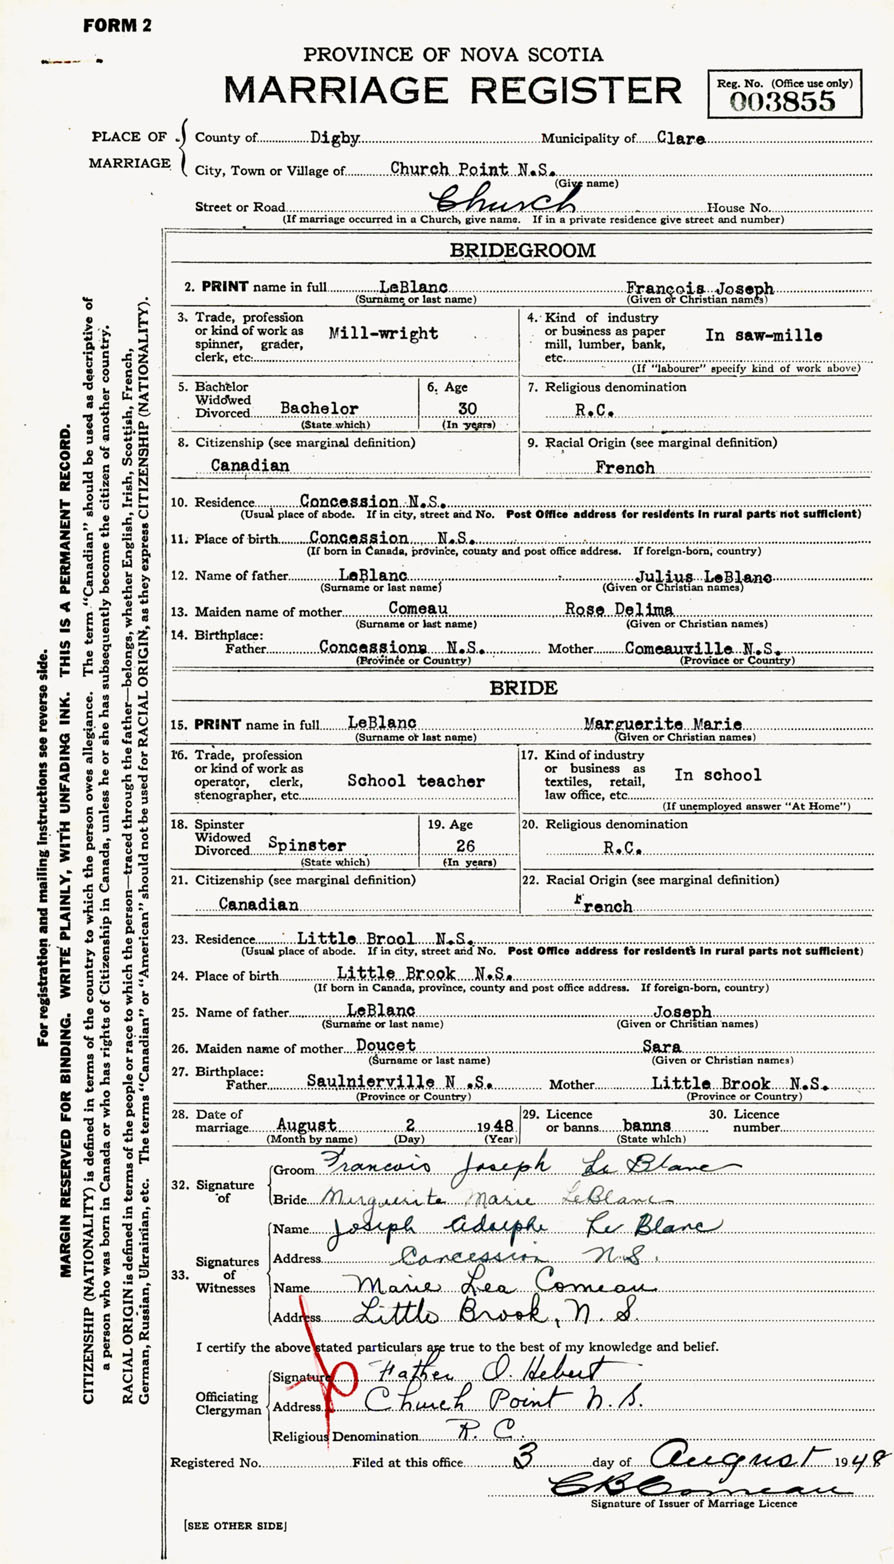 FORM 2
PROVINCE OF NOVA SCOTIA
MARRIAGE REGISTER
Reg. No. (Office use only)
003855
PLACE OF MARRIAGE
County of Digby Municipality of Clare
City, Town or Village of Church Point N.S.
(Give name)
Street or Road Church House No.
(If marriage occurred in a Church, give name. If in a private residence give street and number)
BRIDEGROOM
2. PRINT name in full LeBlanc François Joseph
(Surname or last name) (Given or Christian names)
3. Trade, profession
or kind of work as
spinner, grader,
clerk, etc. Mill-wright
4. Kind of industry
or business as paper
mill, lumber, bank,
etc. In saw-mille
(If "labourer" specify kind of work above)
5. Bachelor
Widowed
Divorced Bachelor
(State which)
6. Age
30
(In years)
7. Religious denomination
R.C.
8. Citizenship (see marginal definition)
Canadian
9. Racial Origin (see marginal definition)
French
10. Residence Concession N.S.
(Usual place of abode. If in city, street and No. Post Office address for residents in rural parts not sufficient)
11. Place of birth Concession N.S.
(If born in Canada, province, county and post office address. If foreign-born, country)
12. Name of father LeBlanc Julius LeBlanc
(Surname or last name) (Given or Christian names)
13. Maiden name of mother Comeau Rose Delima
(Surname or last name) (Given or Christian names)
14. Birthplace:
Father Concessions N.S. Mother Comeauville N.S.
(Province or Country) (Province or Country)
BRIDE
15. PRINT name in full LeBlanc Marguerite Marie
(Surname or last name) (Given or Christian names)
16. Trade, profession
or kind of work as
operator, clerk,
stenographer, etc. School teacher
17. Kind of industry
or business as
textiles, retail,
law office, etc. In school
(If unemployed answer "At Home")
18. Spinster
Widowed
Divorced Spinster
(State which)
19. Age
26
(In years)
20. Religious denomination
R.C.
21. Citizenship (see marginal definition)
Canadian
22. Racial Origin (see marginal definition)
French
23. Residence Little Brool N.S.
(Usual place of abode. If in city, street and No. Post Office address for residents in rural parts not sufficient)
24. Place of birth Little Brook N.S.
(If born in Canada, province, county and post office address. If foreign-born, country)
25. Name of father LeBlanc Joseph
(Surname or last name) (Given or Christian names)
26. Maiden name of mother Doucet Sara
(Surname or last name) (Given or Christian names)
27. Birthplace:
Father Saulnierville N .S. Mother Little Brook N.S.
(Province or Country) (Province or Country)
28. Date of
marriage August 2 1948
(Month by name) (Day) (Year)
29. Licence
or banns banns
(State which)
30. Licence
number
32. Signature of
Groom Francois Joseph Le Blanc
Bride Marguerite Marie LeBlanc
33. Signatures of Witnesses
Name Joseph Adolphe Le Blanc
Address Concession N.S.
Name Marie Lea Comeau
Address Little Brook, N. S.
I certify the above stated particulars are true to the best of my knowledge and belief.
Officiating Clergyman
Signature Father O. Hebert
Address Church Point N.S.
Religious Denomination R. C.
Registered No. Filed at this office 3 day of August 1948
C B Comeau
Signature of Issuer of Marriage Licence
[SEE OTHER SIDE]
For registration and mailing instructions see reverse side.
MARGIN RESERVED FOR BINDING. WRITE PLAINLY, WITH UNFADING INK. THIS IS A PERMANENT RECORD.
CITIZENSHIP (NATIONALITY) is defined in terms of the country to which the person owes allegiance. The term "Canadian" should be used as descriptive of
a person who was born in Canada or who has rights of Citizenship in Canada, unless he or she has subsequently become the citizen of another country.
RACIAL ORIGIN is defined in terms of the people or race to which the person—traced through the father—belongs, whether English, Irish, Scottish, French,
German, Russian, Ukrainian, etc. The terms "Canadian" or "American" should not be used for RACIAL ORIGIN, as they express CITIZENSHIP (NATIONALITY).